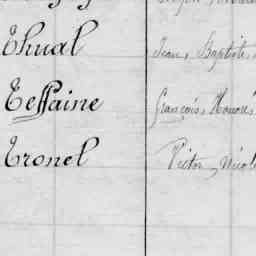 Thual Jean, Baptiste,
Teffaine François, Honoré,
Tronel Victor, Nicol